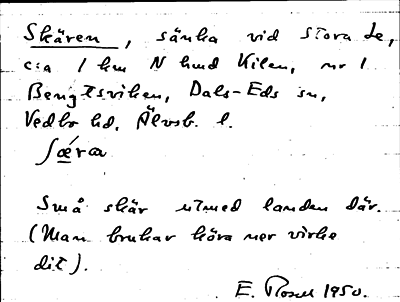 Skären, sänka vid Stora Le,
c:a 1 km N hmd Kilen, nr 1
Bengtsviken, Dals-Eds sn,
Vedbo hd, Älvsb. l.
Små skär utmed landen där.
(Man brukar köra ner virke
dit).
E. Rosell 1950.